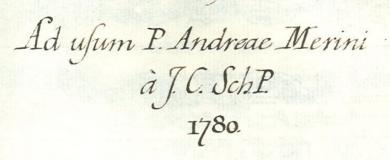 Ad uſum P. Andreae Merini
à J. C. SchP.
1780.